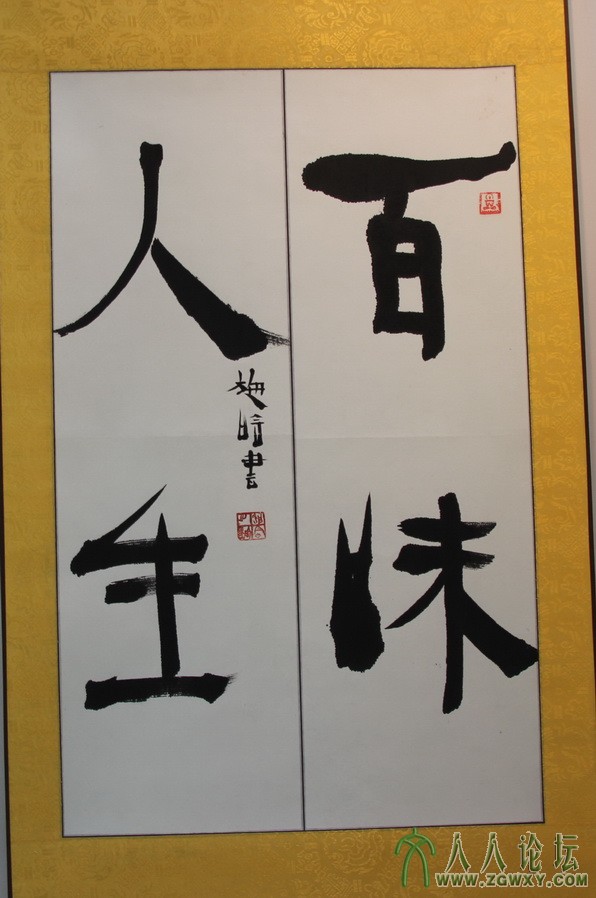 百味
人生
梅晴書
人人论坛
WWW.ZGWXY.COM